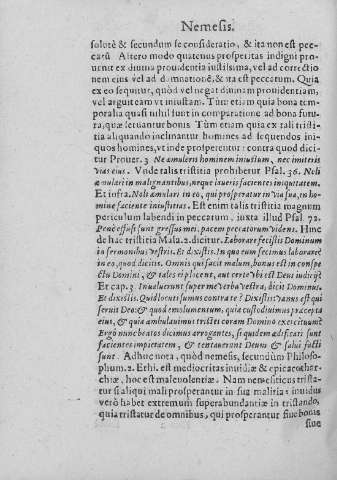 Nemesis.
solutè & secundum se consideratio, & ita non est pec-
catū. Altero modo quatenus prosperitas indigni pro-
uenit ex diuina prouidentia iustissima, vel ad correctio
nem eius vel ad damnationē, & ita est peccatum. Quia
ex eo sequitur, quòd vel negat diuinam prouidentiam,
vel arguit eam vt iniustam. Tùm etiam quia bona tem-
poralia quasi nihil sunt in comparatione ad bona futu-
ra, quæ seruantur bonis Tùm etiam quia ex tali tristi-
tia aliquando inclinantur homines ad sequendos iniquos
homines, vt inde prosperentur: contra quod dici
tur Prouer. 3 Ne æmuleris hominem iniustum, nec imiteris
vias eius. Vnde talis tristitia prohibetur Psal. 36. Noli
æmulari in malignantibus, neque zelaueris facientes iniquitatem.
Et infra. Noli æmulari in eo, qui prosperatur in via sua, in ho-
mine faciente iniustitias. Est enim talis tristitia magnum
periculum labendi in peccatum, iuxta illud Psal. 72.
Penè effusi sunt gressus mei. pacem peccatorum videns. Hinc
de hac tristitia Mala. 2. dicitur. Laborare fecistis Dominum
in sermonibus vestris. & dixistis. In quo eum fecimus laborare?
in eo, quòd dicitis. Omnis qui facit malum, bonus est in conspe
ctu Domini, & tales ei placent, aut certè vbi est Deus iudicij?
Et cap. 3 Inualuerunt super me verba vestra, dicit Dominus.
Et dixistis. Quid locuti sumus contra te? Dixistis vanus est qui
seruit Deo: & quod emolumentum, quia custodiuimus præcepta
eius, & quia ambulauimus tristes coram Domino exercituum?
Ergo nunc beatos dicimus arrogantes, si quidem ædificati sunt
facientes impietatem, & tentauerunt Deum & salui facti
sunt. Adhuc nota, quòd nemesis, secundùm Philoso-
phum. 2. Ethi. est mediocritas inuidiæ & epicærecha-
chiæ, hoc est maleuolentiæ. Nam nemesiticus trista-
tur si aliqui mali prosperantur in sua malitia: inuidus
verò habet extremum superabundantiæ in tristando,
quia tristatur de omnibus, qui prosperantur siue bonis
siue